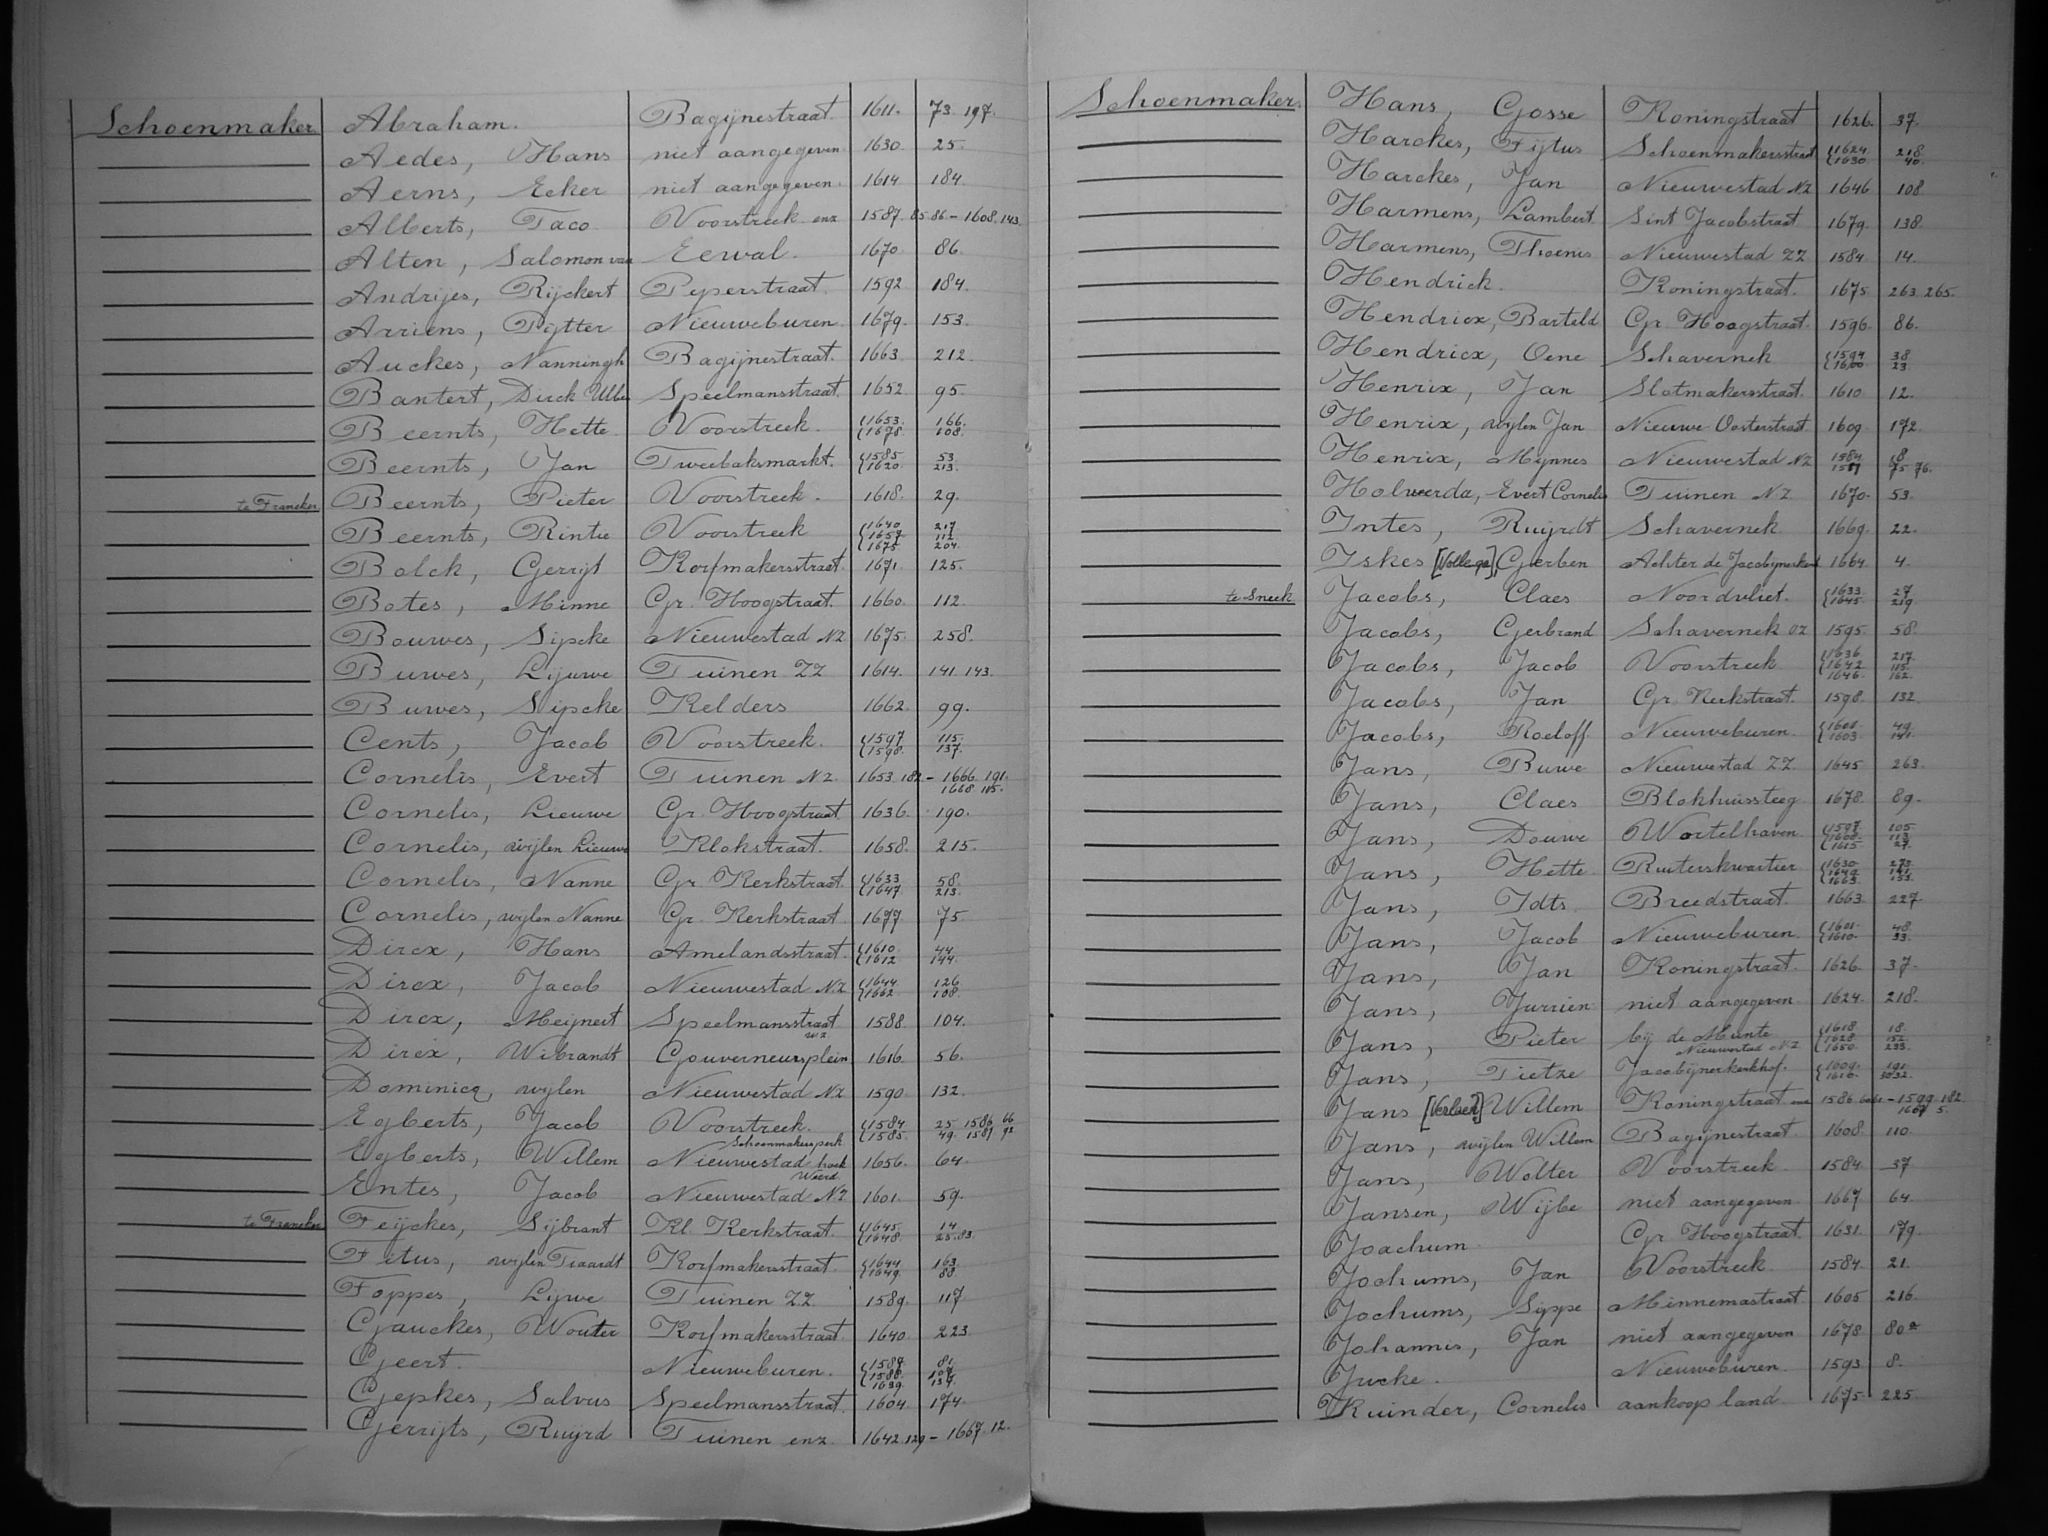 Schoenmaker. Abraham. Bagijnestraat. 1611. 73. 197.
Aedes, Hans niet aangegeven 1630. 25.
Aerns, Ecker niet aangegeven. 1614. 184.
Alberts, Taco Voorstreek enz 1587. 85.86 - 1608. 143.
Alten, Salomon van Eewal. 1670. 86.
Andrijes, Rijckert Peperstraat. 1592 184.
Arriens, Pijtter Nieuweburen. 1679. 153.
Auckes, Nanningh Bagijnestraat. 1663. 212.
Bantert, Dirck Ulbes Speelmansstraat. 1652 95.
Beernts, Hette. Voorstreek. 1653. 166.
1678. 108.
Beernts, Jan Tweebaksmarkt. 1585 53.
1620. 213.
te Franeker Beernts, Pieter Voorstreek. 1618. 29.
Beernts, Rintie Voorstreek 1640 217
1657 112
1675 204.
Bolck, Gerrijt Korfmakersstraat. 1671. 125.
Botes, Minne Gr. Hoogstraat. 1660. 112.
Bouwes, Sipcke Nieuwestad NZ 1675. 258.
Buwes, Lijuwe Tuinen ZZ 1614. 141. 143.
Buwes, Sipcke Kelders 1662. 99.
Cents, Jacob Voorstreek. 1597 115.
1598. 137.
Cornelis, Evert Tuinen NZ. 1653. 182 - 1666. 191.
1668. 115.
Cornelis, Lieuwe Gr. Hoogstraat. 1636. 190.
Cornelis, wijlen Lieuwe Klokstraat. 1658. 215.
Cornelis, Nanne Gr. Kerkstraat. 1633 58.
1647 213.
Cornelis, wijlen Nanne Gr. Kerkstraat 1677 75
Dircx, Hans Amelandsstraat. 1610. 44.
1612 144.
Dircx, Jacob Nieuwestad NZ 1644. 126
1662. 108.
Dircx, Meijnert Speelmansstraat 1588. 104.
WZ
Dircx, Wibrandt Gouverneursplein. 1616. 56.
Dominicq, wijlen Nieuwestad NZ 1590 132.
Egberts, Jacob Voorstreek. 1584 25. 1586 66
1585. 49. 1587 92
Schoenmakersperk
Egberts, Willem Nieuwestad hoek 1656. 64.
Weerd
Entes, Jacob Nieuwestad NZ 1601. 59.
te Franeker Feijckes, Sijbrant Kl. Kerkstraat. 1645. 14
1648. 25.83.
Fetus, wijlen Tiaardt Korfmakersstraat. 1644 163.
1649. 88.
Foppes, Lijwe Tuinen ZZ. 1589. 117
Gauckes, Wouter Korfmakersstraat. 1640. 223
Geert. Nieuweburen. 1587. 81.
1588. 107.
1639. 134.
Gepkes, Salvus Speelmansstraat. 1604. 174.
Gerrijts, Ruijrd Tuinen enz. 1642. 129 - 1667. 12.
Schoenmaker. Hans, Gosse Koningstraat 1626. 37.
Harckes, Tijtus Schoenmakersstraat 1624 218.
1630 40.
Harckes, Jan Nieuwestad NZ 1646 108
Harmens, Lambert Sint Jacobstraat 1679. 138.
Harmens, Thoenis Nieuwestad ZZ 1584 14.
Hendrick. Koningstraat. 1675 263. 265.
Hendricx, Barteld Gr. Hoogstraat. 1596. 86.
Hendricx, Oene Schavernek 1594 38.
1600. 23.
Henrix, Jan Slotmakersstraat. 1610 12.
Henrix, wijlen Jan Nieuwe Oosterstraat 1609. 172.
Henrix, Meijnnes Nieuwestad NZ 1584 18
1587 75 76.
Holwerda, Evert Cornelis Tuinen NZ 1670. 53.
Intes, Ruijrdt Schavernek. 1669. 22.
Iskes [Vollega], Gerben Achter de Jacobijnerkerk 1664 4.
te Sneek Jacobs, Claes Noordvliet. 1633. 27
1645 219.
Jacobs, Gerbrand Schavernek OZ 1595. 58.
Jacobs, Jacob Voorstreek 1636 217
1642 115.
1646. 162.
Jacobs, Jan Gr. Kerkstraat. 1598. 132
Jacobs, Roeloff. Nieuweburen. 1601. 49.
1603. 141.
Jans, Buwe Nieuwestad ZZ. 1645 263.
Jans, Claes Blokhuissteeg 1678. 89.
Jans, Douwe Wortelhaven 1597 105.
1608. 113.
1615. 27.
Jans, Hette Ruiterskwartier 1630. 273.
1649. 141.
1663. 153.
Jans, Idts. Breedstraat. 1663. 227.
Jans, Jacob Nieuweburen 1601. 48.
1610. 33.
Jans, Jan Koningstraat. 1626. 37.
Jans, Jurrien niet aangegeven 1624. 218.
Jans, Pieter bij de Munte 1618. 18.
Nieuwestad NZ 1628. 152.
1650. 233.
Jans, Tietze Jacobijnerkerkhof. 1609. 191.
1610.
Jans [Verlaen] Willem Koningstraat enz 1586 - 1599. 182
1607 5.
Jans, wijlen Willem Bagijnestraat. 1608. 110.
Jans, Wolter Voorstreek. 1584. 37
Jansen, Wijbe niet aangegeven 1667 64
Joachum. Gr. Hoogstraat. 1631. 179.
Jochums, Jan Voorstreek 1584. 21.
Jochums, Sippe Minnemastraat. 1605 216.
Johannis, Jan niet aangegeven 1678 80a
Jucke. Nieuweburen. 1593 8.
Kuinder, Cornelis aankoop land. 1675. 225